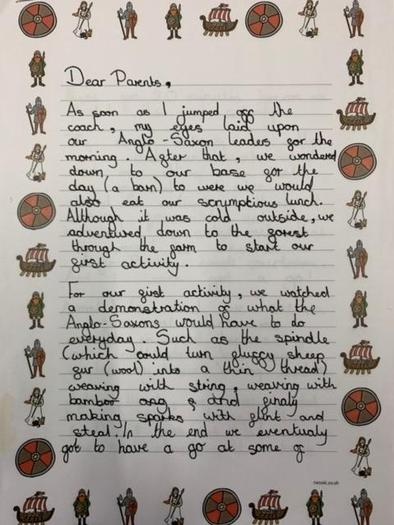 Dear Parents,
As soon as I jumped off the
coach, my eyes laid upon
our Anglo-Saxon leaders for the
morning. After that, we wondered
down to our base for the
day (a barn) to were we would
also eat our scrumptious lunch.
Although it was cold outside, we
adventured down to the forest
through the farm to start our
first activity.
For our first activity, we watched
a demonstration of what the
Anglo-Saxons would have to do
everyday. Such as the spindle
(which could turn fluffy sheep
fur (wool) into a thin thread)
weaving with string, weaving with
bamboo and finaly
making sparks with flint and
steal. In the end we eventualy
got to have a go at some of